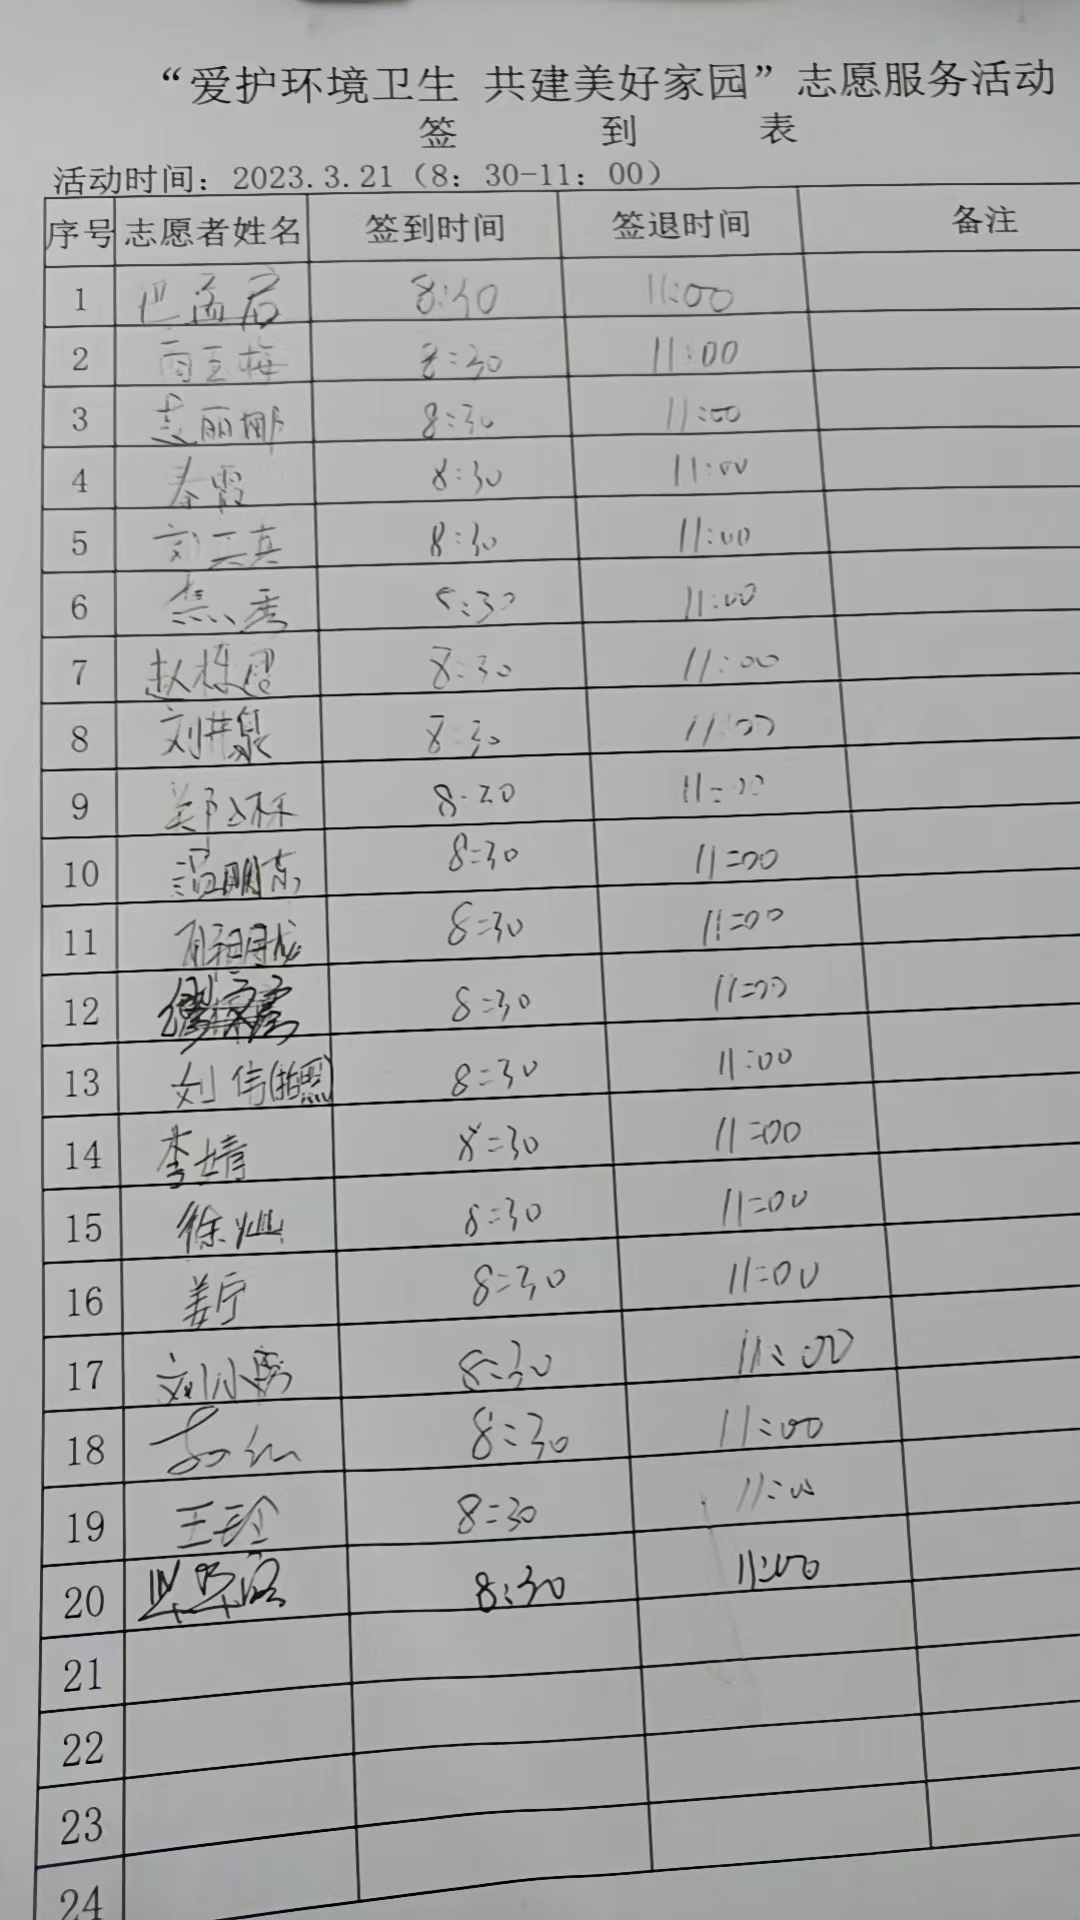 “爱护环境卫生 共建美好家园”志愿服务活动
签 到 表
活动时间：2023.3.21（8：30-11：00）
序号 志愿者姓名 签到时间 签退时间 备注
1 8:30 11:00
2 8:30 11:00
3 丽娜 8:30 11:00
4 秦霞 8:30 11:00
5 8:30 11:00
6 8:30 11:00
7 赵栋 8:30 11:00
8 刘井泉 8:30 11:00
9 郑 林 11:00
10 温明东 8:30 11:00
11 8:30 11:00
12 8:30 11:00
13 刘伟(拍照) 8:30 11:00
14 李婧 8:30 11:00
15 徐灿 8:30 11:00
16 姜宁 8:30 11:00
17 刘小 8:30 11:00
18 8:30 11:00
19 王玲 8:30 11:00
20 8:30 11:00
21
22
23
24